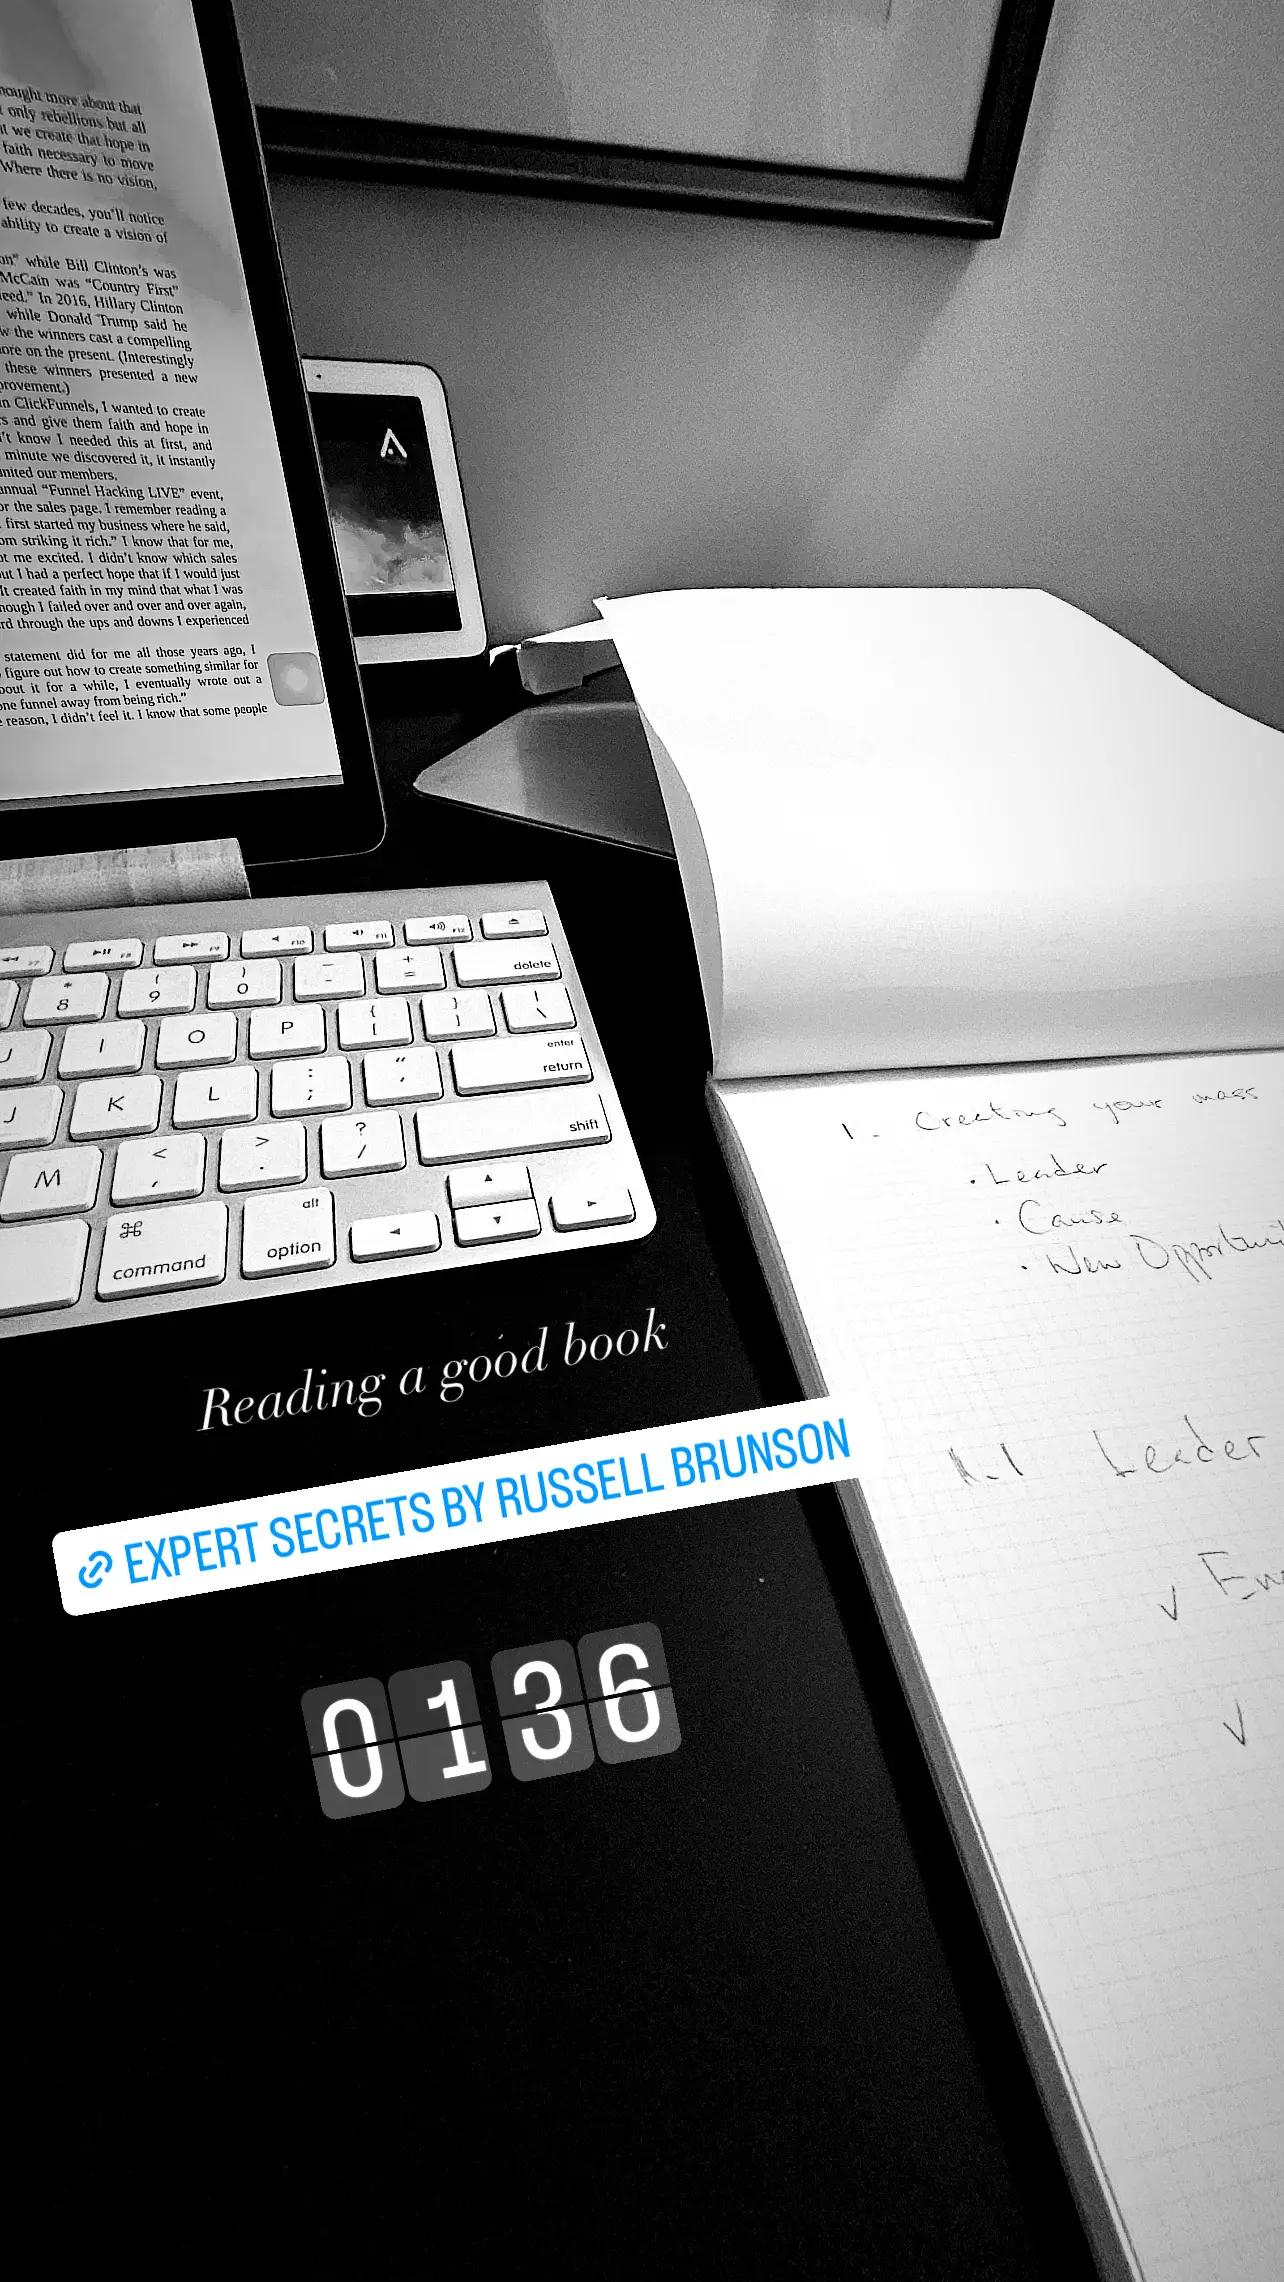 ought more about that
only rebellions but all
t we create that hope in
faith necessary to move
Where there is no vision,
few decades, you'll notice
ability to create a vision of
on" while Bill Clinton's was
McCain was "Country First"
eed." In 2016, Hillary Clinton
while Donald Trump said he
w the winners cast a compelling
ore on the present. (Interestingly
these winners presented a new
provement.)
n ClickFunnels, I wanted to create
s and give them faith and hope in
't know I needed this at first, and
minute we discovered it, it instantly
united our members.
annual "Funnel Hacking LIVE" event,
or the sales page. I remember reading a
first started my business where he said,
om striking it rich." I know that for me,
ot me excited. I didn't know which sales
ut I had a perfect hope that if I would just
It created faith in my mind that what I was
hough I failed over and over and over again,
rd through the ups and downs I experienced
statement did for me all those years ago, I
figure out how to create something similar for
bout it for a while, I eventually wrote out a
one funnel away from being rich."
reason, I didn't feel it. I know that some people
F7 F8 F9 F10 F11 F12
* 8 ( 9 ) 0 _ - + = delete
U I O P { [ } ] | \
J K L : ; " ' enter return
M < , > . ? / shift
⌘ command alt option
1. Creating your mass
• Leader
• Cause
• New Opportuni
1.1 Leader
✓
✓
Reading a good book
EXPERT SECRETS BY RUSSELL BRUNSON
01 36